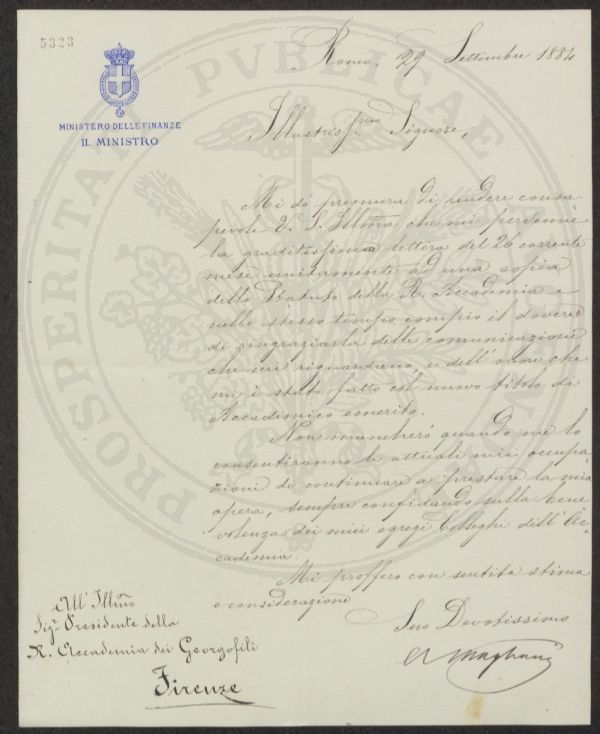 5323
MINISTERO DELLE FINANZE
IL MINISTRO
Roma, 29 Settembre 1884
Illustrissimo Signore,
Mi dò premura di rendere consa
pevole V. S. Illma che mi pervenne
la graditissima lettera del 26 corrente
mese unitamente ad una copia
dello Statuto della R. Accademia e
nello stesso tempo compio il dovere
di ringraziarla delle comunicazioni
che mi riguardano, e dell'onore che
mi è stato fatto col nuovo titolo di
Accademico emerito.
Non mancherò quando me lo
consentiranno le attuali mie occupa
zioni di continuare a prestare la mia
opera, sempre confidando sulla bene
volenza dei miei egregi Colleghi dell'Ac-
cademia.
Mi proffero con sentita stima
e considerazione
Suo Devotissimo
A Magliani
All' Illmo
Sigr. Presidente della
R. Accademia dei Georgofili
Firenze
PROSPERITATI PVBLICAE